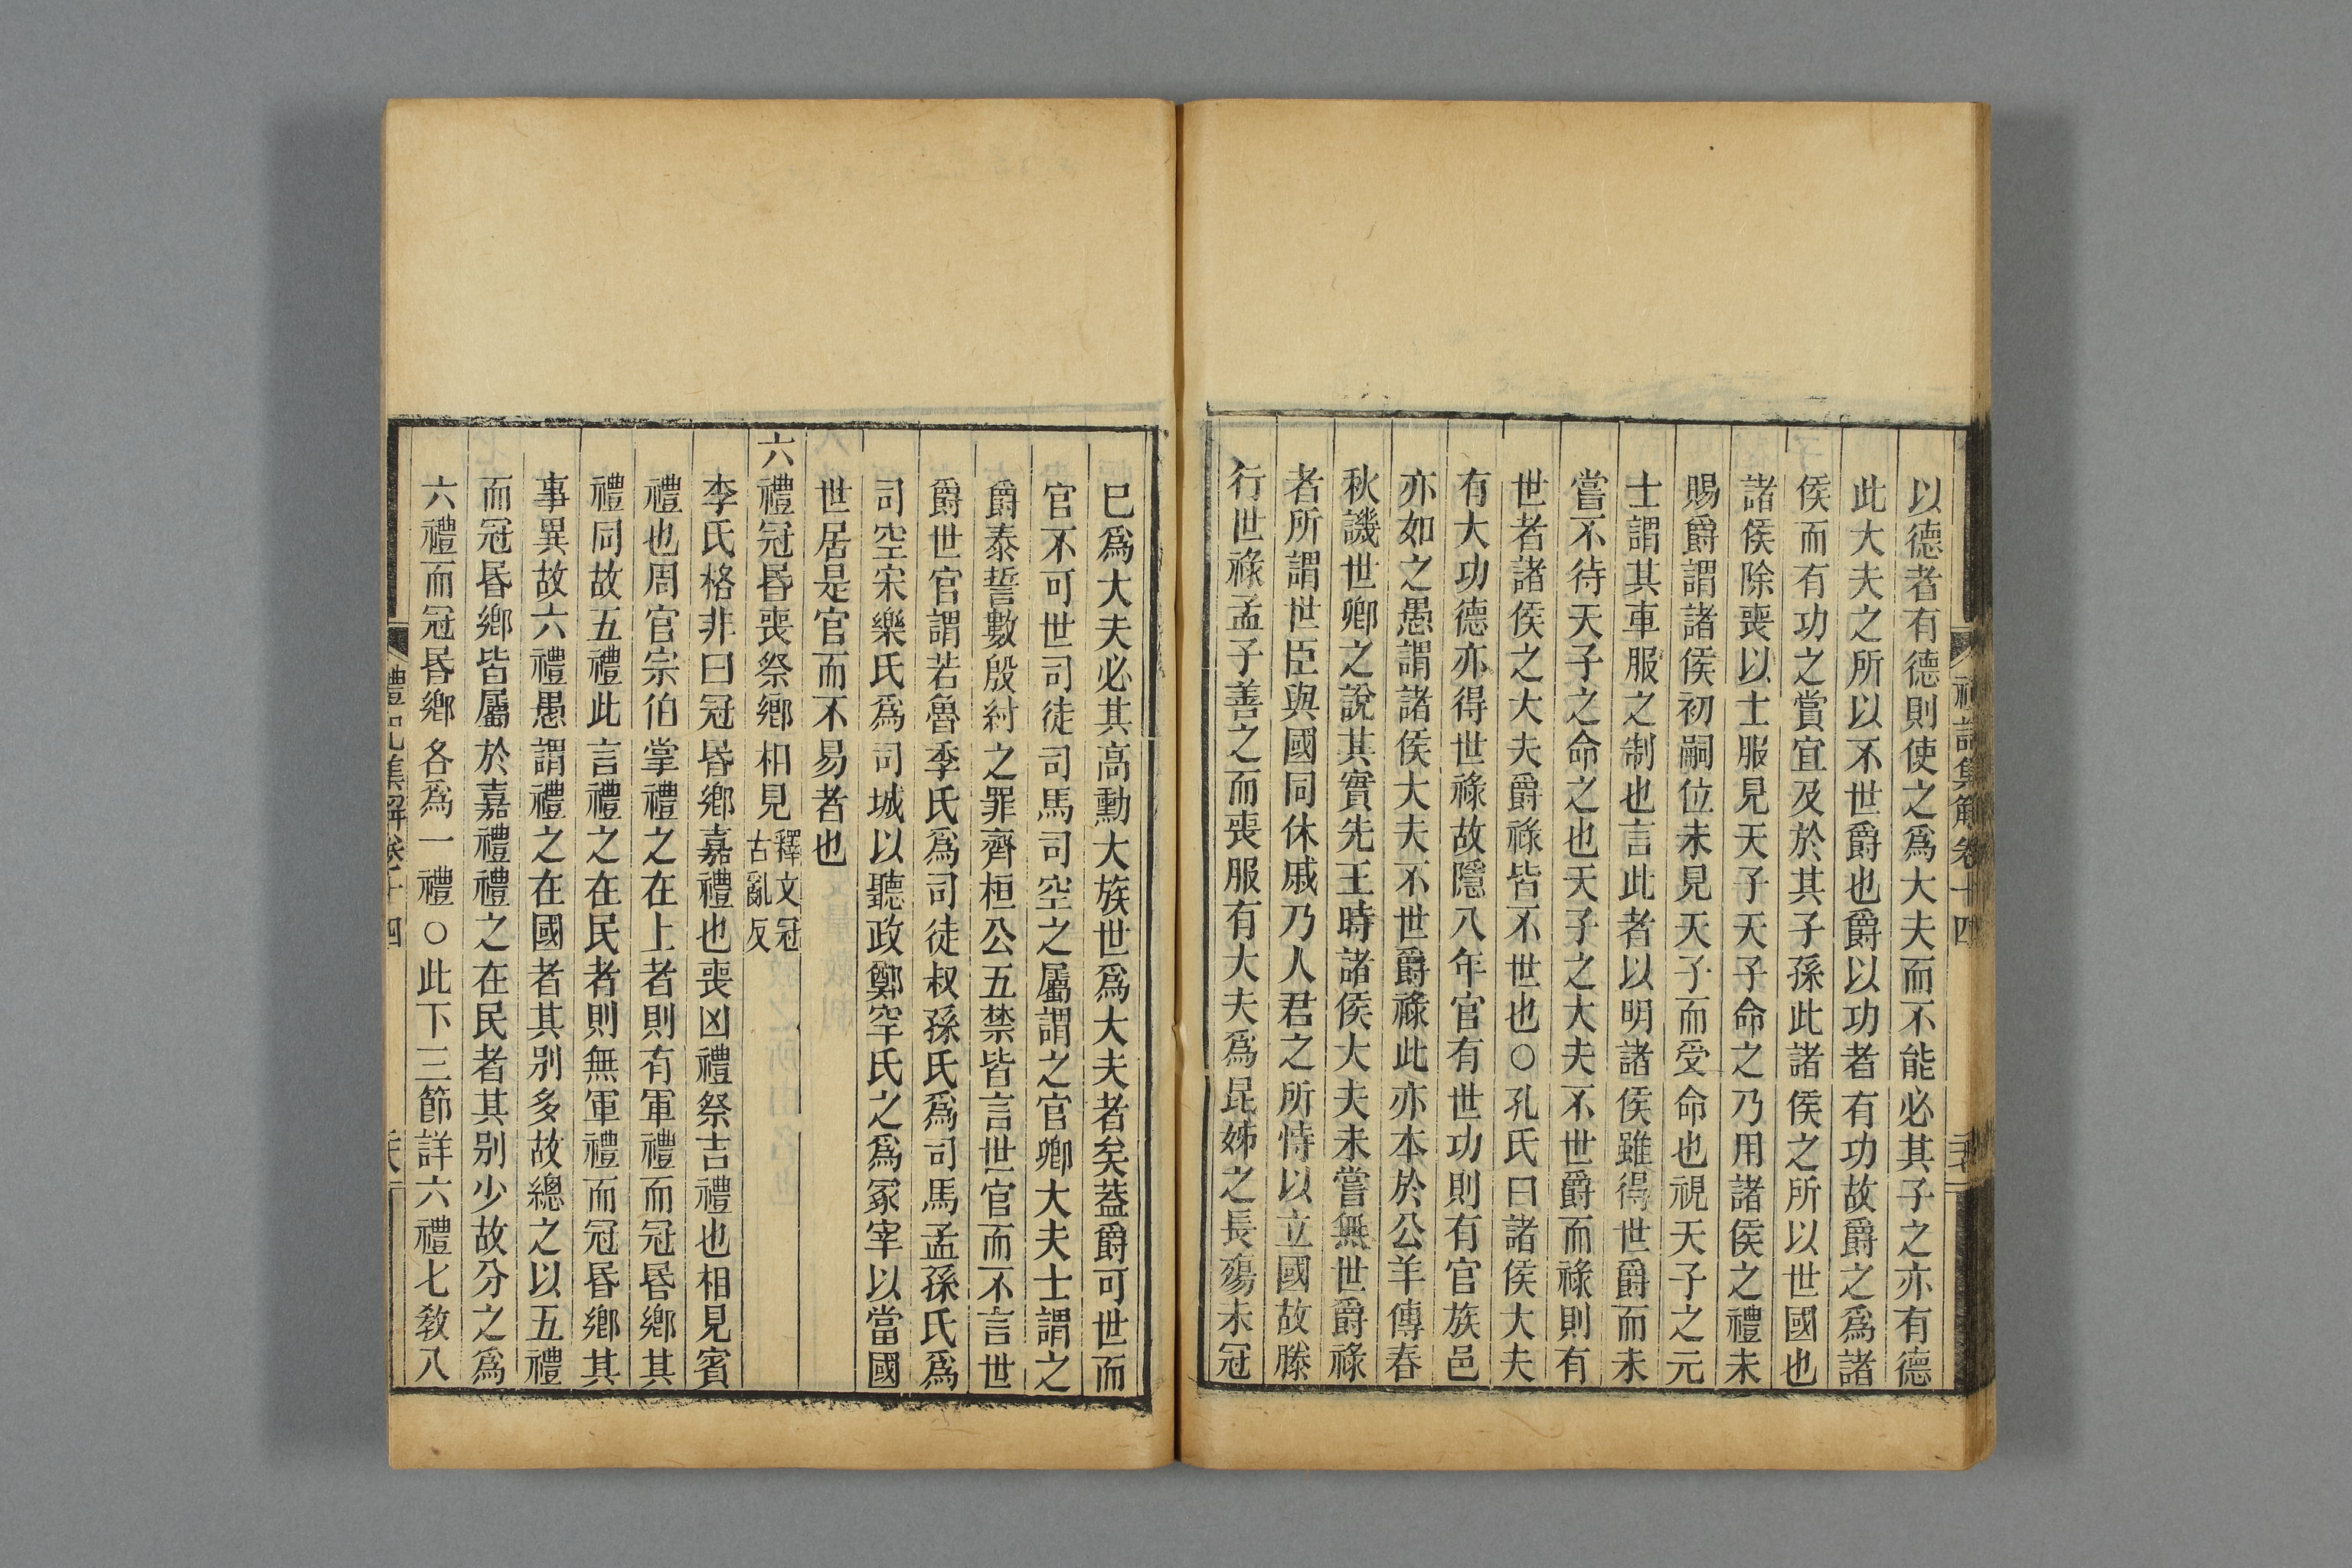 以德者有德則使之爲大夫而不能必其子之亦有德
此大夫之所以不世爵也爵以功者有功故爵之爲諸
侯而有功之賞宜及於其子孫此諸侯之所以世國也
諸侯除喪以士服見天子天子命之乃用諸侯之禮未
賜爵謂諸侯初嗣位未見天子而受命也視天子之元
士謂其車服之制也言此者以明諸侯雖得世爵而未
嘗不待天子之命之也天子之大夫不世爵而祿則有
世者諸侯之大夫爵祿皆不世也○孔氏曰諸侯大夫
有大功德亦得世祿故隱八年官有世功則有官族邑
亦如之愚謂諸侯大夫不世爵祿此亦本於公羊傳春
秋譏世卿之說其實先王時諸侯大夫未嘗無世爵祿
者所謂世臣與國同休戚乃人君之所恃以立國故滕
行世祿孟子善之而喪服有大夫爲昆姊之長殤未冠
已爲大夫必其高勳大族世爲大夫者矣葢爵可世而
官不可世司徒司馬司空之屬謂之官卿大夫士謂之
爵泰誓數殷紂之罪齊桓公五禁皆言世官而不言世
爵世官謂若魯季氏爲司徒叔孫氏爲司馬孟孫氏爲
司空宋樂氏爲司城以聽政鄭罕氏之爲冢宰以當國
世居是官而不易者也
六禮冠昬喪祭鄉相見釋文冠古亂反
李氏格非曰冠昬鄉嘉禮也喪凶禮祭吉禮也相見賓
禮也周官宗伯掌禮之在上者則有軍禮而冠昬鄉其
禮同故五禮此言禮之在民者則無軍禮而冠昬鄉其
事異故六禮愚謂禮之在國者其别多故總之以五禮
而冠昬鄉皆屬於嘉禮禮之在民者其别少故分之爲
六禮而冠昬鄉各爲一禮○此下三節詳六禮七敎八
禮記集解卷十四